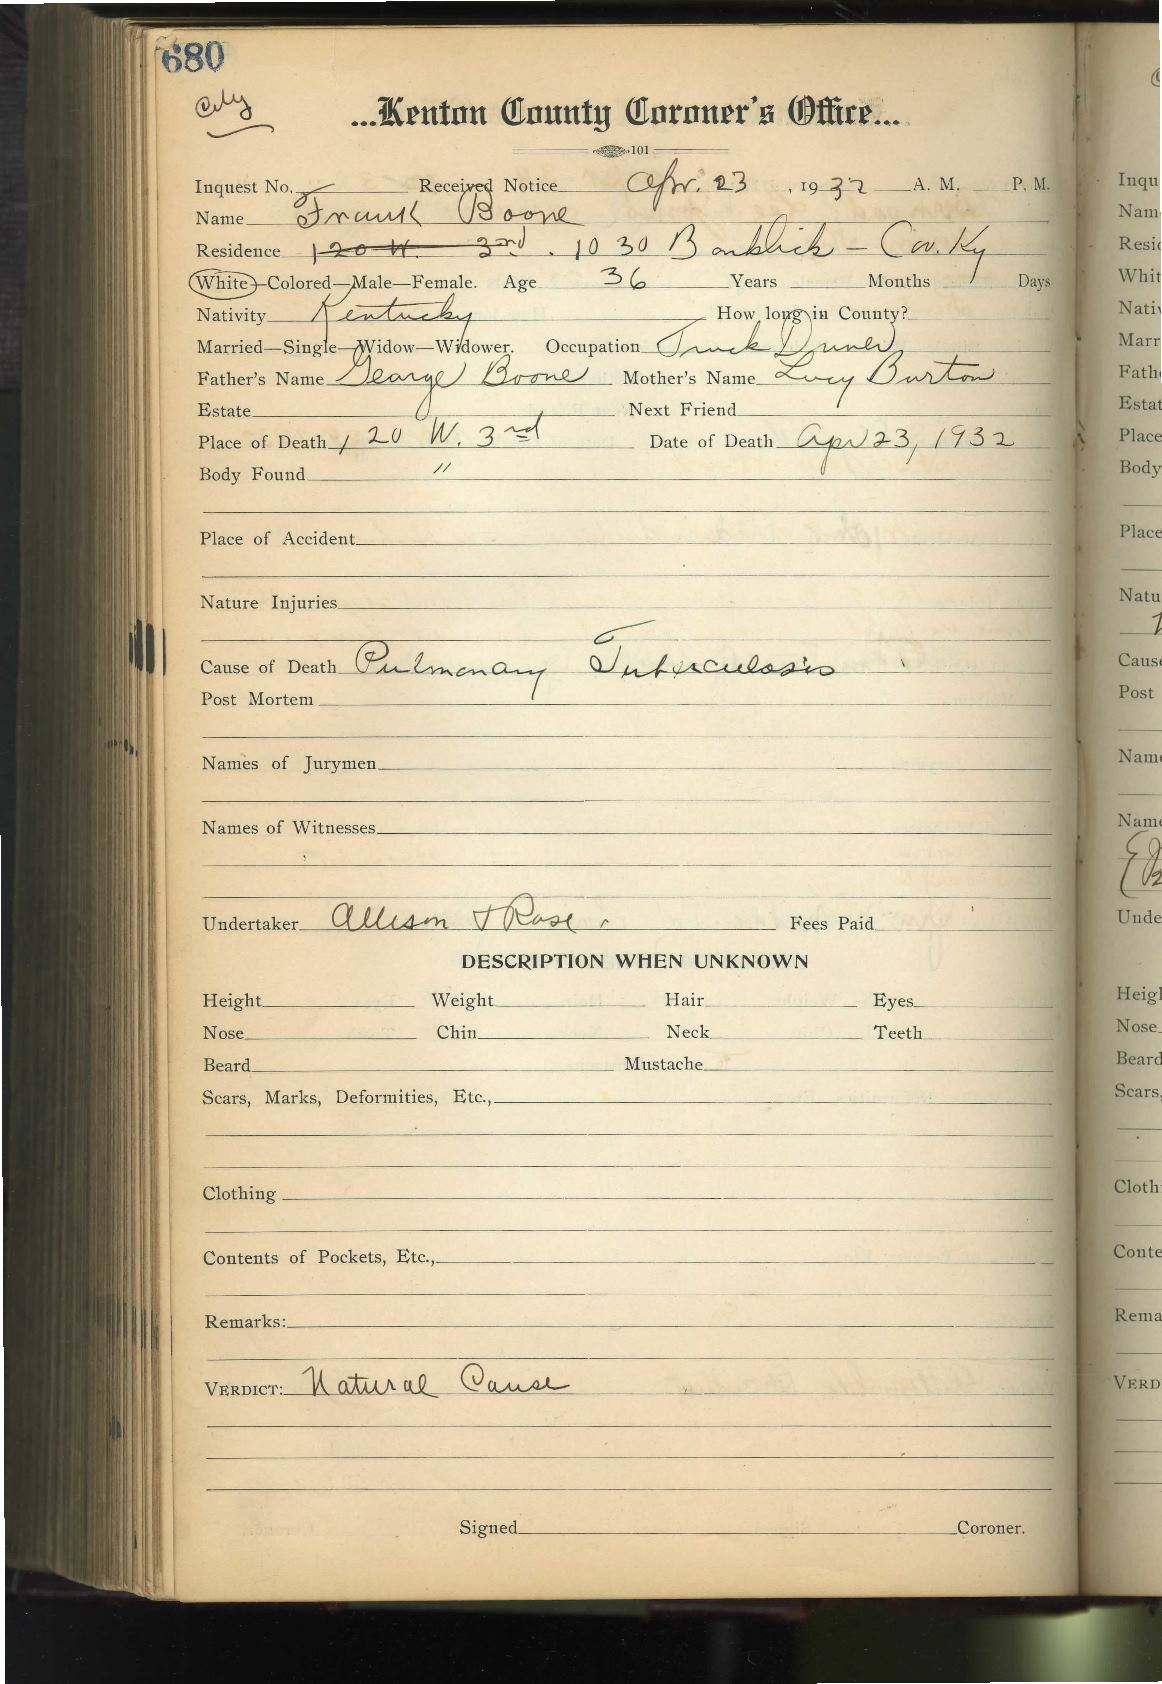 680
City
...Kenton County Coroner's Office...
101
Inquest No. Received Notice Apr. 23, 1932 A. M. P. M.
Name Frank Boone
Residence 120 W. 3rd. 1030 Banklick - Cov. Ky
White-Colored-Male-Female. Age 36 Years Months Days
Nativity Kentucky How long in County?
Married-Single-Widow-Widower. Occupation Truck Driver
Father's Name George Boone Mother's Name Lucy Burton
Estate Next Friend
Place of Death 120 W. 3rd Date of Death Apr 23, 1932
Body Found "
Place of Accident
Nature Injuries
Cause of Death Pulmonary Tuberculosis
Post Mortem
Names of Jurymen
Names of Witnesses
Undertaker Allison & Rose Fees Paid
DESCRIPTION WHEN UNKNOWN
Height Weight Hair Eyes
Nose Chin Neck Teeth
Beard Mustache
Scars, Marks, Deformities, Etc.,
Clothing
Contents of Pockets, Etc.,
Remarks:
VERDICT: Natural Cause
Signed Coroner.
Inqu
Name
Resid
Whit
Nativ
Marr
Fath
Estat
Place
Body
Place
Natu
Cause
Post
Name
Name
Unde
Heigl
Nose
Beard
Scars,
Cloth
Conte
Rema
VERD